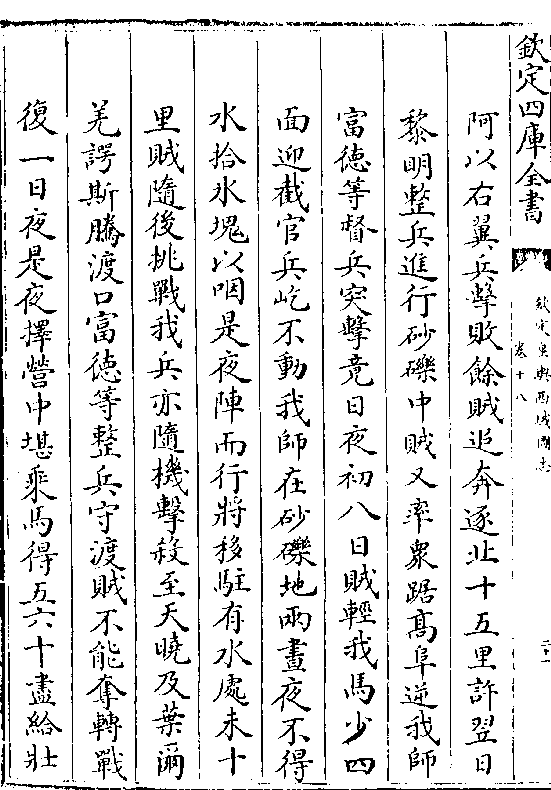 欽定四庫全書
欽定皇輿西域圖志
卷十八
阿以右翼兵擊敗餘賊追奔逐北十五里許翌日
黎明整兵進行砂磧中賊又率衆踞髙阜逆我師
富德等督兵突擊竟日夜初八日賊輕我馬少四
面迎截官兵屹不動我師在砂磧地兩晝夜不得
水拾氷塊以咽是夜陣而行將移駐有水處未十
里賊隨後挑戰我兵亦隨機擊殺至天曉及葉爾
羌諤斯騰渡口富德等整兵守渡賊不能奪轉戰
復一日夜是夜擇營中堪乘馬得五六十盡給壯